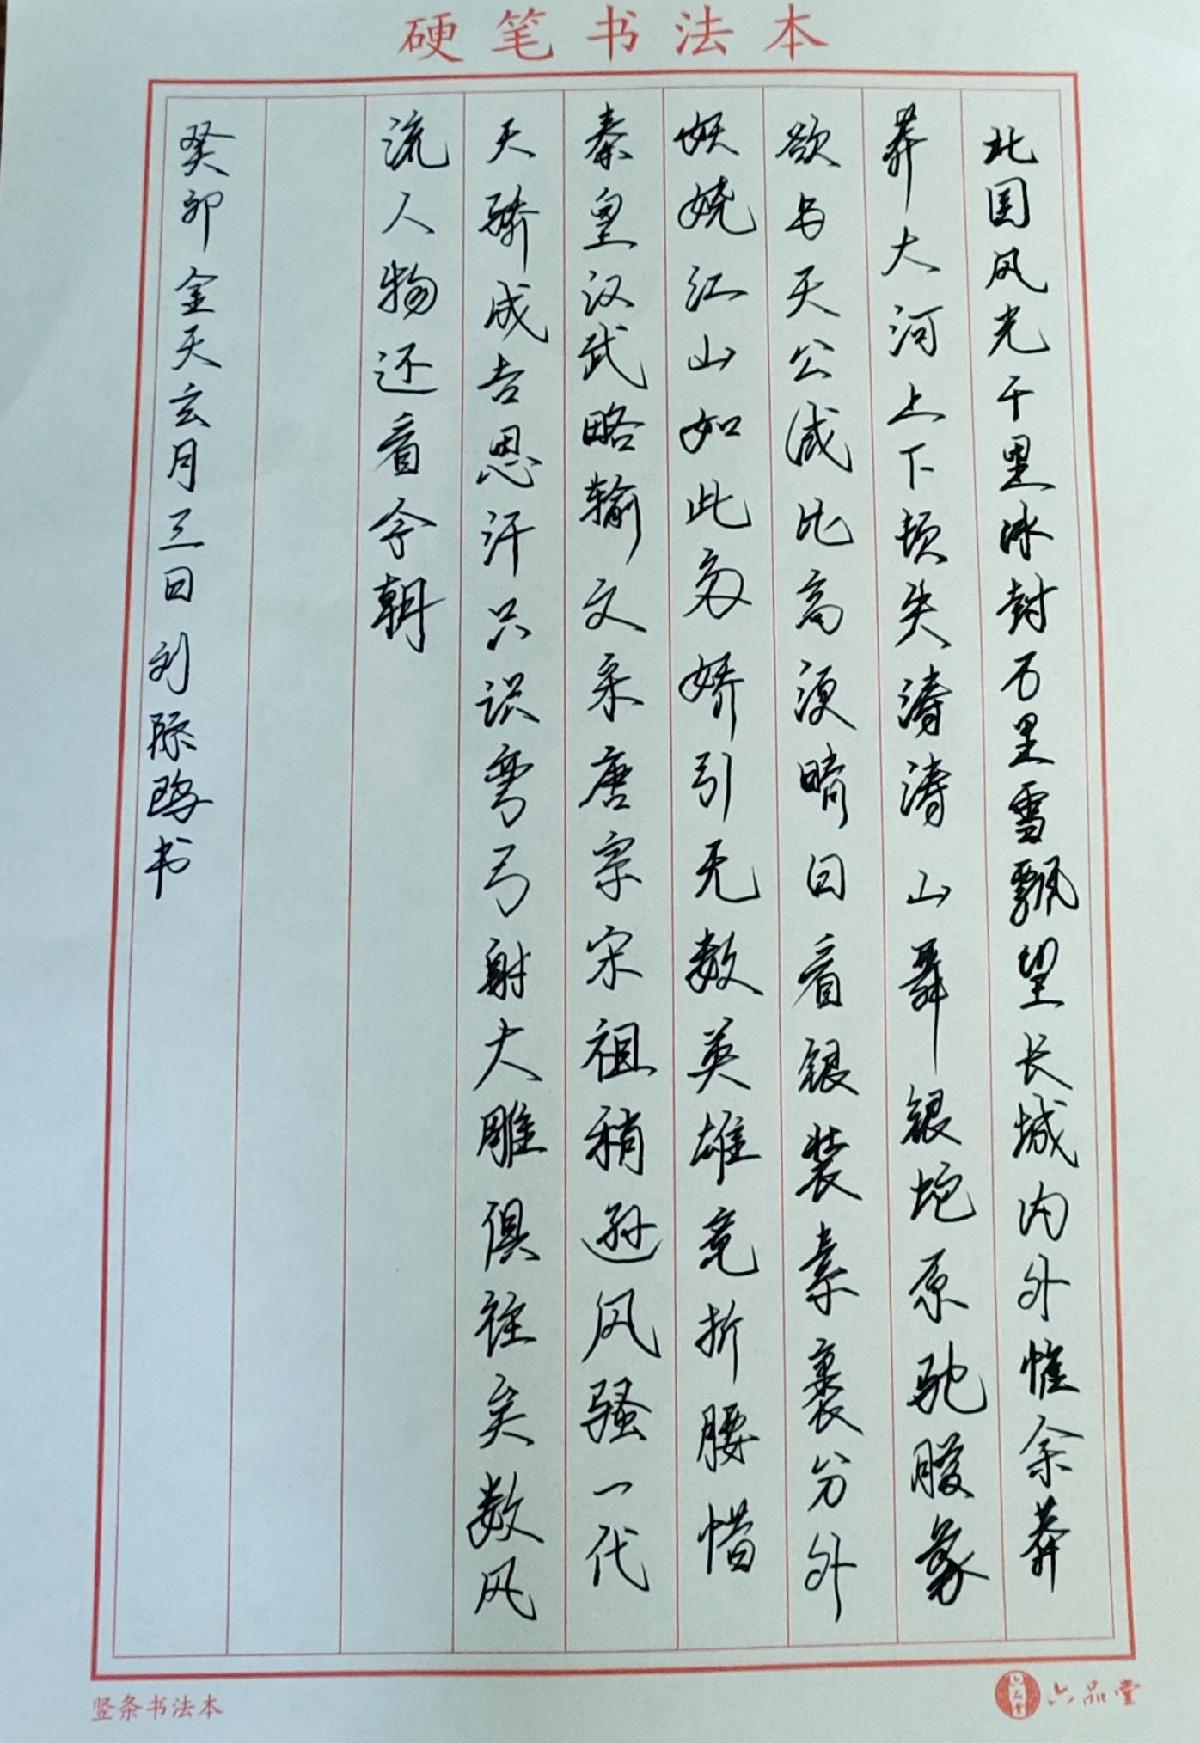 硬笔书法本
北国风光千里冰封万里雪飘望长城内外惟余莽
莽大河上下顿失涛涛山舞银蛇原驰象
欲与天公比高须晴日看银装素裹分外
妖娆江山如此多娇引无数英雄竞折腰惜
秦皇汉武略输文采唐宗宋祖稍逊风骚一代
天骄成吉思汗只识弯弓射大雕俱往矣数风
流人物还看今朝
癸卯金天玄月三日刘书
竖条书法本
六品堂
六品堂